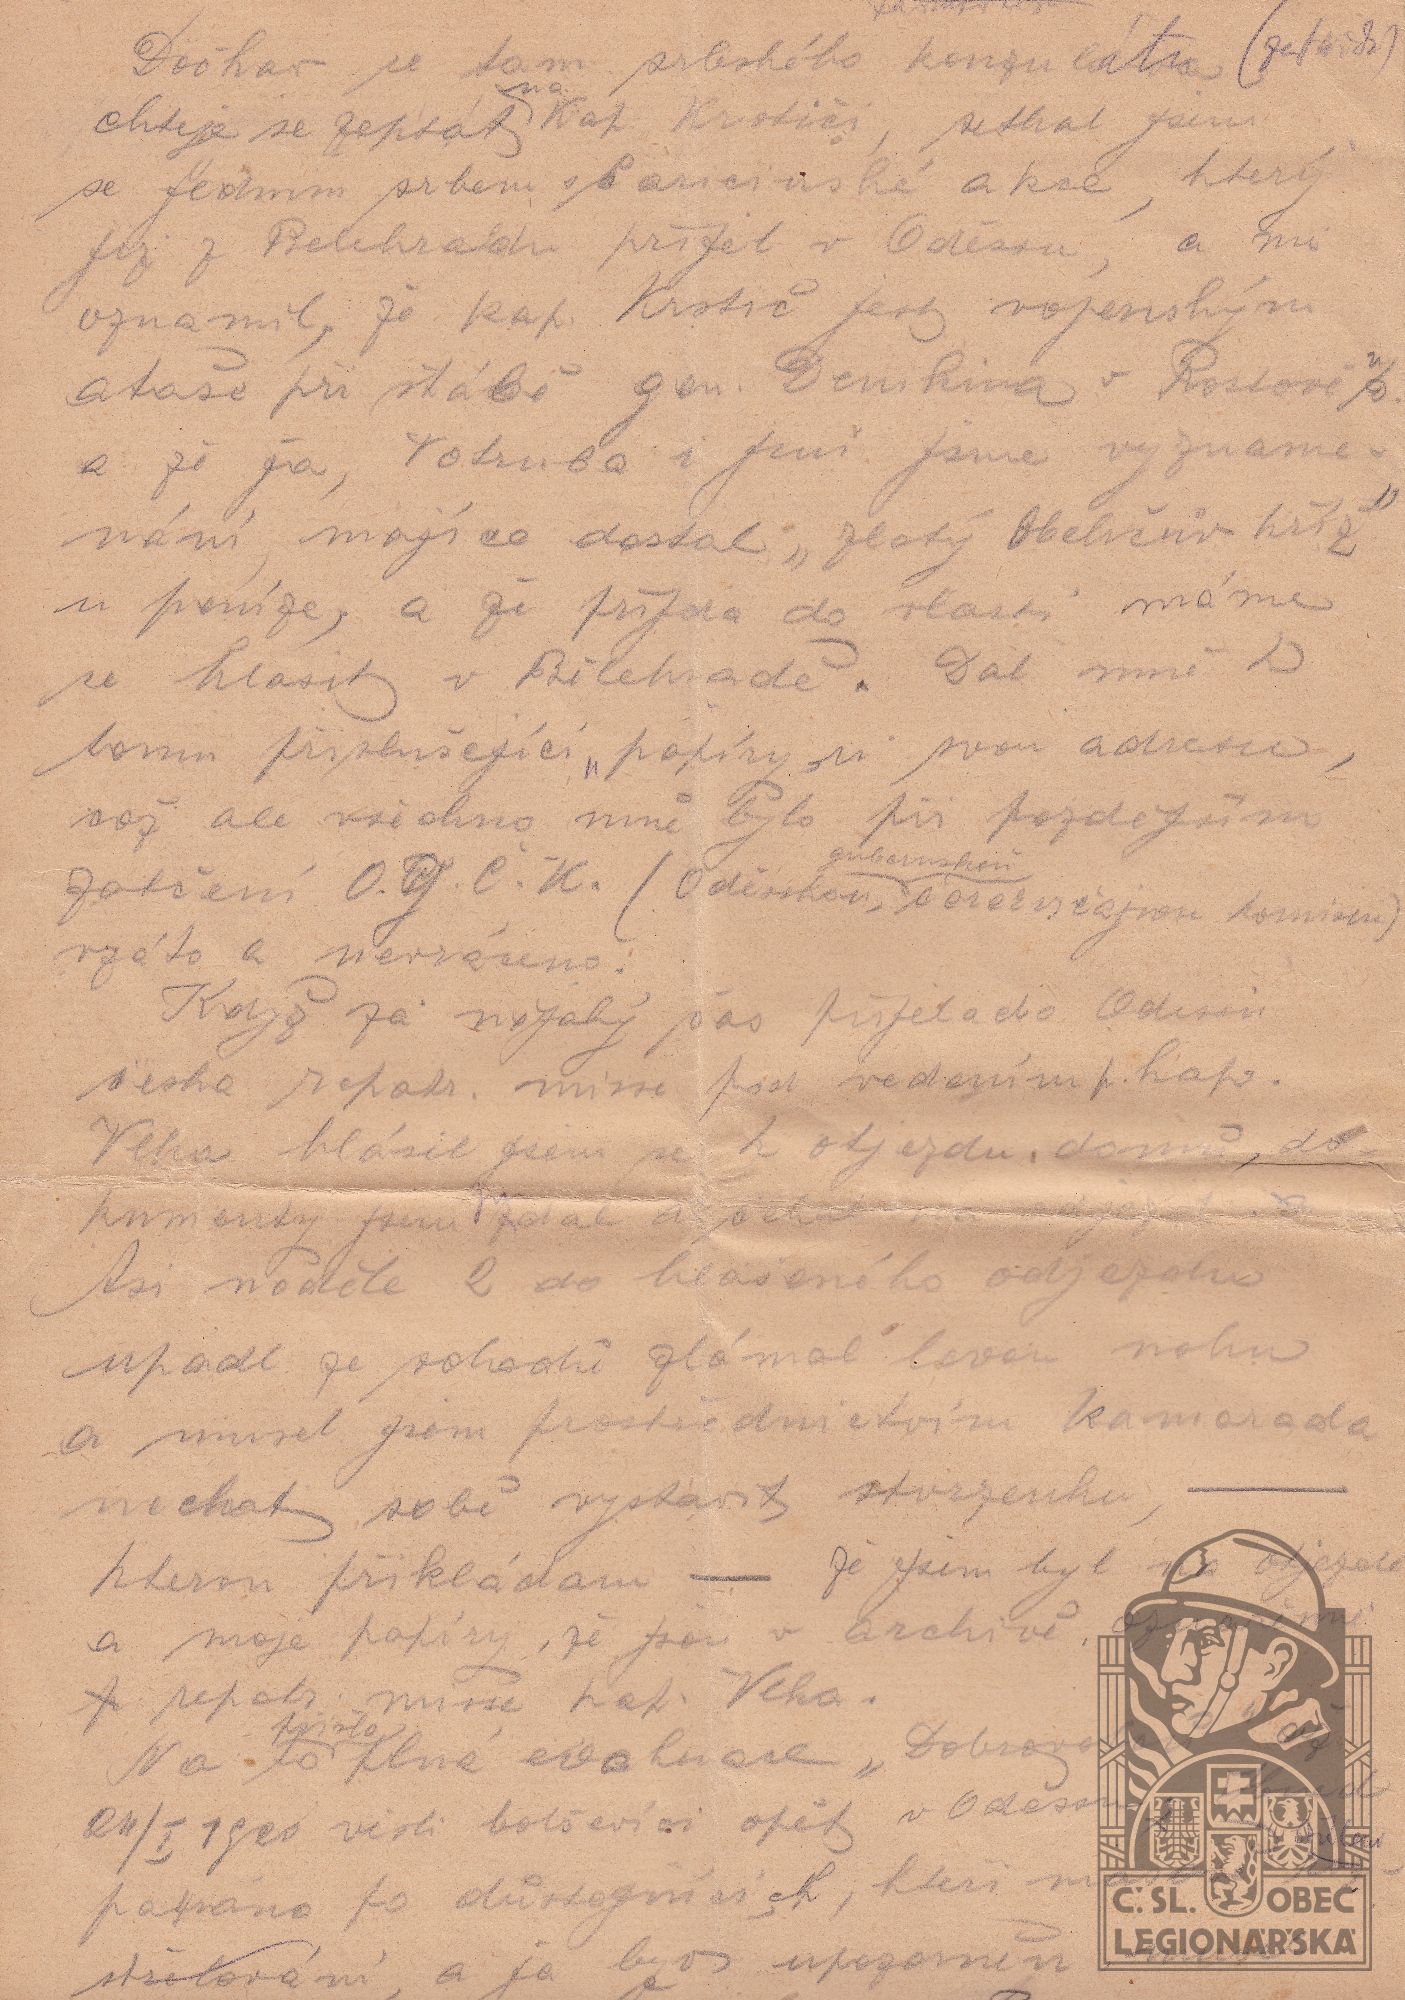 Dočkav se tam srbského konzulátu
chtěje se zeptat na Kap. Krstiči, setkal jsem
se jedním srbem s akce, který
jej z Belehradu přijel v Oděssu, a mi
oznamil, že kap. Krstič jest vojenským
ataše při štábě gen. Denikina v Rostově n/D.
a že ja, Votruba i jiní jsme vyzname-
náni, majíce dostat „zlatý Obeličův kříž"
u peníze, a že přijda do vlasti máme
se hlásit v Bělehradě. Dal mně k
tomu přislušející „papíry" i svou adresu,
což ale všechno mně bylo při pozdějším
zatčení O.G.Č.K. (Oděsskou gubernskou črezvyčajnou komisiu)
vzáto a nevráceno.
Když za nějaký čas přijela do Odessi
česka repatr. misse pod vedením p. kap.
Vlka hlásil jsem se k odjezdu domů, do-
kumenty jsem dal a
Asi neděle 2 do hlašeného odjezdu
upadl ze schodů zlámal levou nohu
a musel jsem prostřednictvím kamarada
nechat sobě vystavit stvrzenku, —
kterou přikládam — že jsem byl na odjezde
a moje papíry, že jsou v archivě,
repatr. misse kap. Vlka.
Na to přišla plná evakuace „
24/I 1920 vešli bolševici opět v Odessu
patráno po důstojnicích, kteři
střelování, a ja byv upozorněn
Č.SL. OBEC
LEGIONÁŘSKÁ